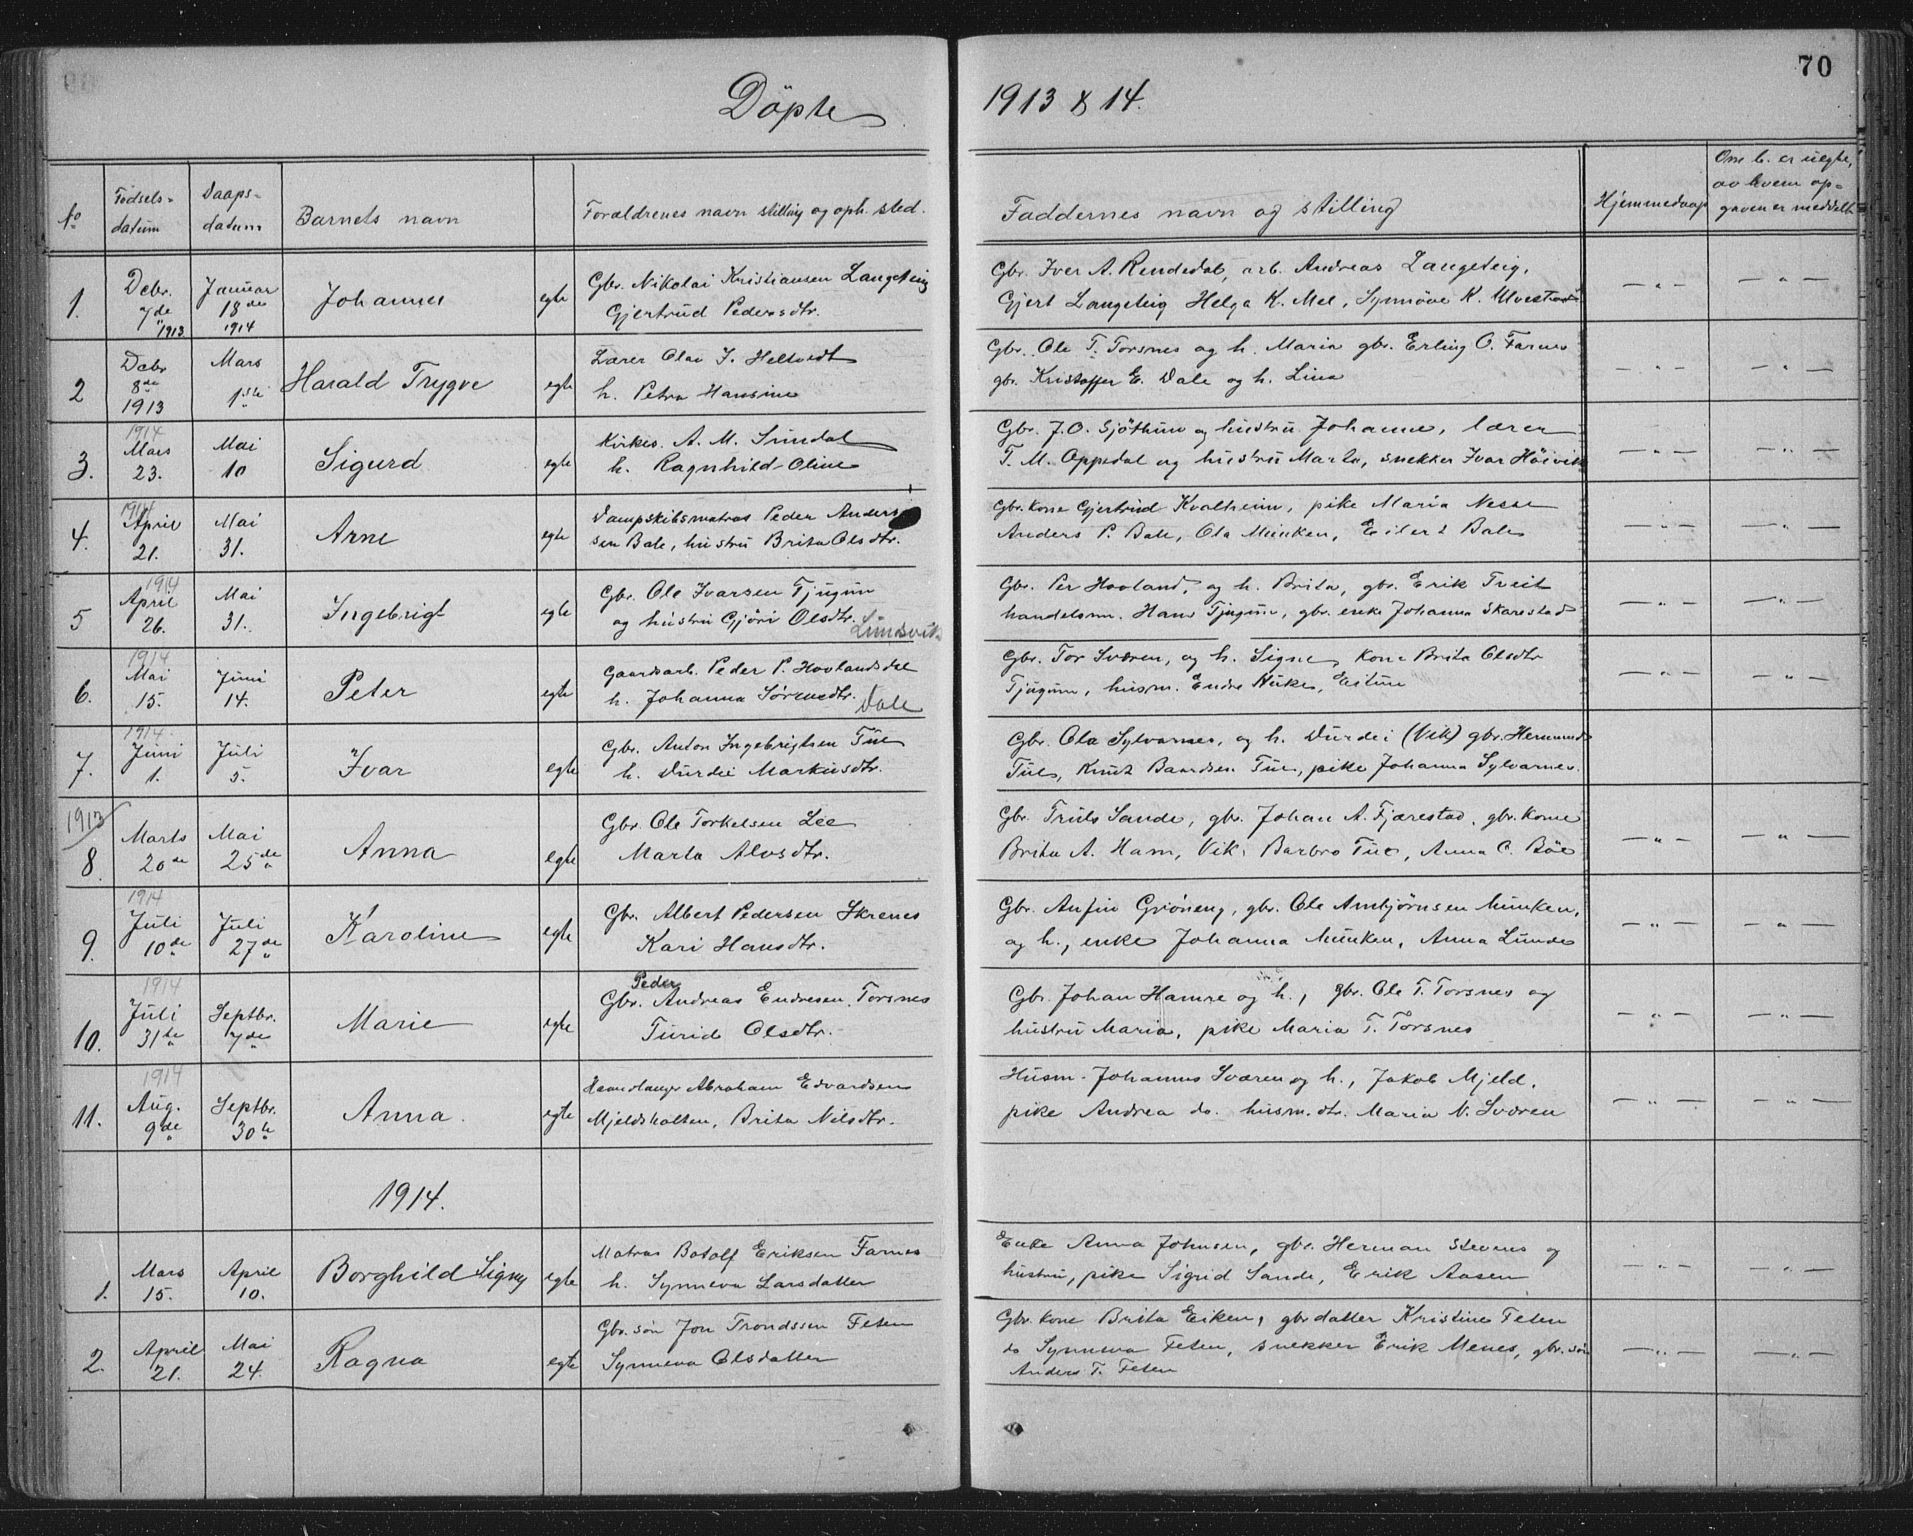 70
Döpte 1913 & 14.
No Fødsels-datum Daaps-datum Barnets navn Forældrenes navn stilling og oph. sted. Faddernes navn og stilling Hjemmedaap Om b. er uegte, av hvem op-gaven er meddelt
1. Debr. 7de 1913 Januar 18de 1914 Johannes egte Gbr. Nikolai Kristiansen Langeteig
Gjertrud Pedersdtr.
Gbr. Iver A. Rendedal, arb. Andreas Langeteig,
Gjert Langeteig Helga K. Mel, Synnöve K.
2 Debr 8de 1913 Mars 1ste Harald Trygve egte Lærer Olav J. Heltvedt
h. Petra Hansine
Gbr. Ole T. Torsnes og h. Maria gbr. Erling O. Farnes
gbr. Kristoffer E. Dale og h. Lina
3. 1914 Mars 23. Mai 10 Sigurd egte Kirkes. A. M. Sundal
h. Ragnhild Oline
Gbr. J. O. Sjöthun og hustru Johanne, lærer
T. M. Oppedal og hustru Marta, snekker Ivar Höivik
4. 1914 April 21. Mai 31. Arne egte Dampskibsmatros Peder Anders-
sen Bale, hustru Brita Olsdtr.
Gbr. kone Gjertrud Kvalheim, pike Maria Nesse
Anders P. Bale, Ola Munken, Eilert Bale
5 1914 April 26. Mai 31. Ingebrigt egte Gbr. Ole Ivarsen Tjugum
og hustru Gjöri Olsdtr. Lunsvik
Gbr. Per Hovland, og h. Brita, gbr. Erik Tveit
handelsm. Hans Tjugum, gbr. enke Johanna Skarestad
6. 1914 Mai 15. Juni 14. Peter egte Gaardsarb. Peder P. Hovlandsdal
h. Johanna Sörensdtr. Dale
Gbr. Tor Sværen, og h. Signe, kone Brita Olsdtr
Tjugum, husm. Endre Huke, Eitun
7. 1914 Juni 1. Juli 5. Ivar egte Gbr. Anton Ingebrigtsen Tue
h. Durdei Markusdtr.
Gbr. Ola Sylvarnes, og h. Durdei (Vik) gbr. Hermund
Tue, Knut Baardsen Tue, pike Johanna Sylvarnes.
1913
8. Marts 20de Mai 25de Anna egte Gbr. Ole Torkelsen Lee
Marta Alvsdtr.
Gbr. Truls Sande, gbr. Johan A. Fjærestad, gbr. kone
Brita A. Ham, Vik, Barbro Tue, Anna C. Böe
9. 1914 Juli 10de Juli 27de Karoline egte Gbr. Albert Pedersen Skrenes
Kari Hansdtr.
Gbr. Anfin Gröneng, gbr. Ole Ambjörnsen Munken,
og h., enke Johanna Munken, Anna Lunde
10. 1914 Juli 31te Septbr. 7de Marie egte Peder
Gbr. Andreas Endresen Torsnes
Turid Olsdtr.
Gbr. Johan Hamre og h., gbr. Ole T. Torsnes og
hustru Maria, pike Maria T. Torsnes
11. 1914 Aug. 9de Septbr. 30te Anna. egte Haandlanger Abraham Edvardsen
Mjeldsholten, Brita Nilsdtr.
Husm. Johannes Sværen og h., Jakob Mjeld,
pike Andrea do. husm. dtr. Maria N. Sværen
1914.
1. Mars 15. April 10. Borghild Signy egte Matros Botolf Eriksen Farnes
h. Synneva Larsdatter
Enke Anna Johnsen, gbr. Herman Stevens og
hustru, pike Sigrid Sande, Erik Aasen
2. April 21. Mai 24. Ragna egte Gbr. sön Jon Trondssen Feten
Synneva Olsdatter
Gbr. kone Brita Eiken, gbr datter Kristine Feten
do Synneva Feten, snekker Erik Menes, gbr. sön
Anders T. Feten